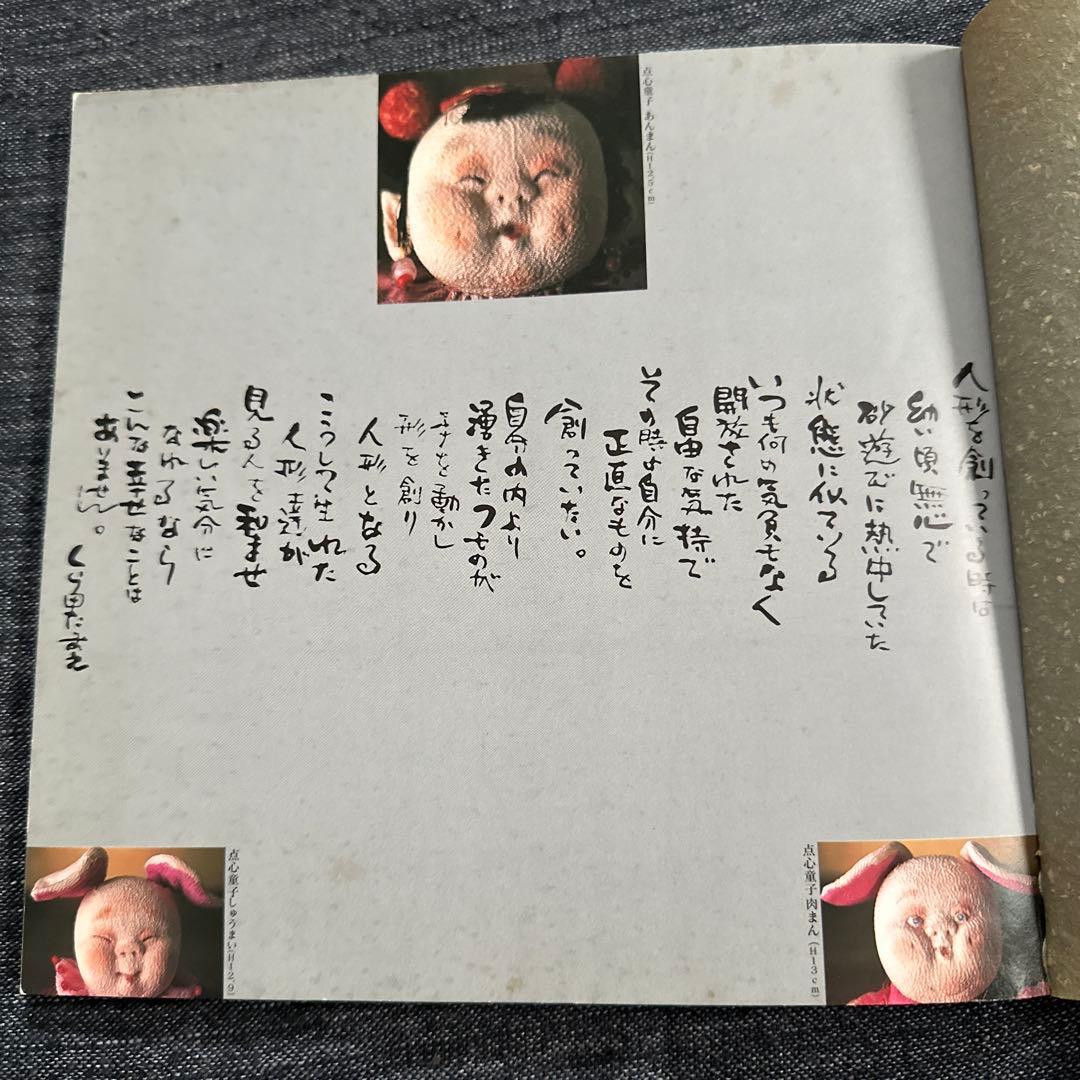 点心童子 あんまん(H12,5cm)
人形を創っている時は
幼い頃無心で
砂遊びに熱中していた
状態に似ている
いつも何の気負もなく
開放された
自由な気持で
その時の自分に
正直なものを
創っていたい。
自分の内より
湧きたつものが
手を動かし
形を創り
人形となる
こうして生れた
人形達が
見る人を和ませ
楽しい気分に
なれるなら
こんな幸せなことは
ありません。
くら田たまえ
点心童子肉まん(H13cm)
点心童子しゅうまい(H12,9)